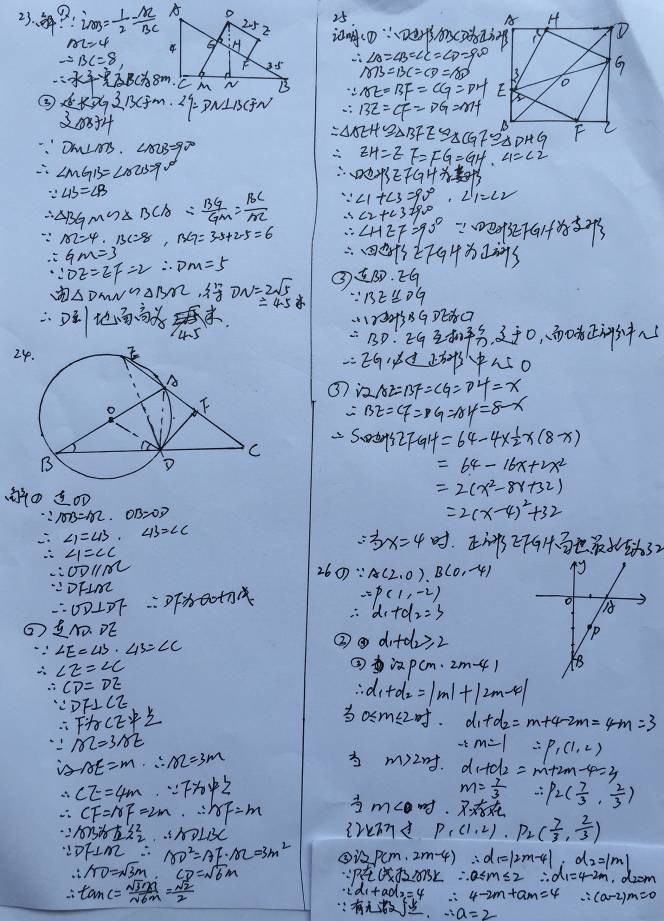 23. 解① i_AB = 1/2 = AC/BC
AC=4
∴BC=8,
∴水平宽度BC为8m.
② 延长DG交BC于M. 过 DN⊥BC于N
交AB于H
∵ DM⊥AB. ∠ACB=90°
∴ ∠MGB=∠ACB=90°
∵ ∠B=∠B
∴△BGM∽△BCA ∴ BG/GM = BC/AC
∵ AC=4. BC=8, BG=3.5+2.5=6
∴ GM=3
∵ DE=EF=2 ∴ DM=5
由△DMN∽△BAC, 得 DN=2√5
≈4.5米
∴ D到地面高为 4.5 米.
A D 2.5 E G H F 4 3.5 C M N B
24.
E A O F B D C
解① 连OD
∵AB=AC. OB=OD
∴ ∠1=∠B. ∠B=∠C
∴ ∠1=∠C
∴OD∥AC
∵DF⊥AC
∴OD⊥DF ∴DF为⊙O切线
② 连AD. DE
∵∠E=∠B. ∠B=∠C
∴ ∠E=∠C
∴ CD=DE
∵DF⊥CE
∴ F为CE中点
∵ AC=3AE
设AE=m. ∴AC=3m
∴CE=4m. ∵F为中点
∴ CF=EF=2m. ∴AF=m
∵AB为直径. ∴AD⊥BC
∵DF⊥AC ∴ AD²=AF·AC=3m²
∴AD=√3m, CD=√6m
∴tanC=√3m/√6m=√2/2
25
证明① ∵四边形ABCD为正方形
∴∠A=∠B=∠C=∠D=90°
AB=BC=CD=AD
∵AE=BF=CG=DH
∴BE=CF=DG=AH
∴△AEH≌△BFE≌△CGF≌△DHG
∴ EH=EF=FG=GH. ∠1=∠2
∴四边形EFGH为菱形
∵∠1+∠3=90°. ∠1=∠2
∴∠2+∠3=90°
∴∠HEF=90° ∵四边形EFGH为菱形
∴ 四边形EFGH为正方形
A H D E O G B F C
② 连BD. EG
∵BE∥DG
∴ BD. EG 互相平分, 交于O, 而O为正方形中心
∴EG必过正方形中心O
③ 设AE=BF=CG=DH=x
∴BE=CF=DG=AH=8-x
∴ S四边形EFGH=64-4×½x(8-x)
= 64-16x+2x²
= 2(x²-8x+32)
= 2(x-4)²+32
∴当x=4时. 正方形EFGH面积最小值为32
26 ① ∵A(2,0). B(0,-4)
∴P(1,-2)
∴ d₁+d₂=3
y O A P B
② ① d₁+d₂≥2
② 设P(m, 2m-4)
∴d₁+d₂=|m|+|2m-4|
当0≤m≤2时. d₁+d₂=m+4-2m=4-m=3
∴m=1 ∴P₁(1,2)
当 m>2时. d₁+d₂=m+2m-4=3
m=7/3 ∴P₂(7/3, 2/3)
当m<0时. 不存在
综上所述. P₁(1,2). P₂(7/3, 2/3)
③设P(m, 2m-4) ∴d₁=|2m-4|, d₂=|m|
∵P在线段AB上 ∴0≤m≤2 ∴d₁=4-2m. d₂=m
∵d₁+ad₂=4 ∴ 4-2m+am=4 ∴(a-2)m=0
∵有无数个点 ∴a=2